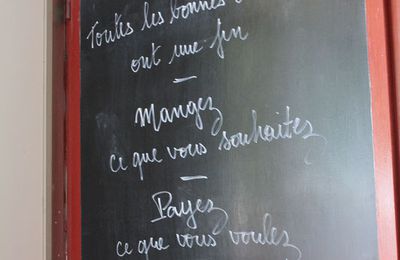 Toutes les bonnes
ont une fin
—
Mangez
ce que vous souhaitez
—
Payez
ce que vous voulez